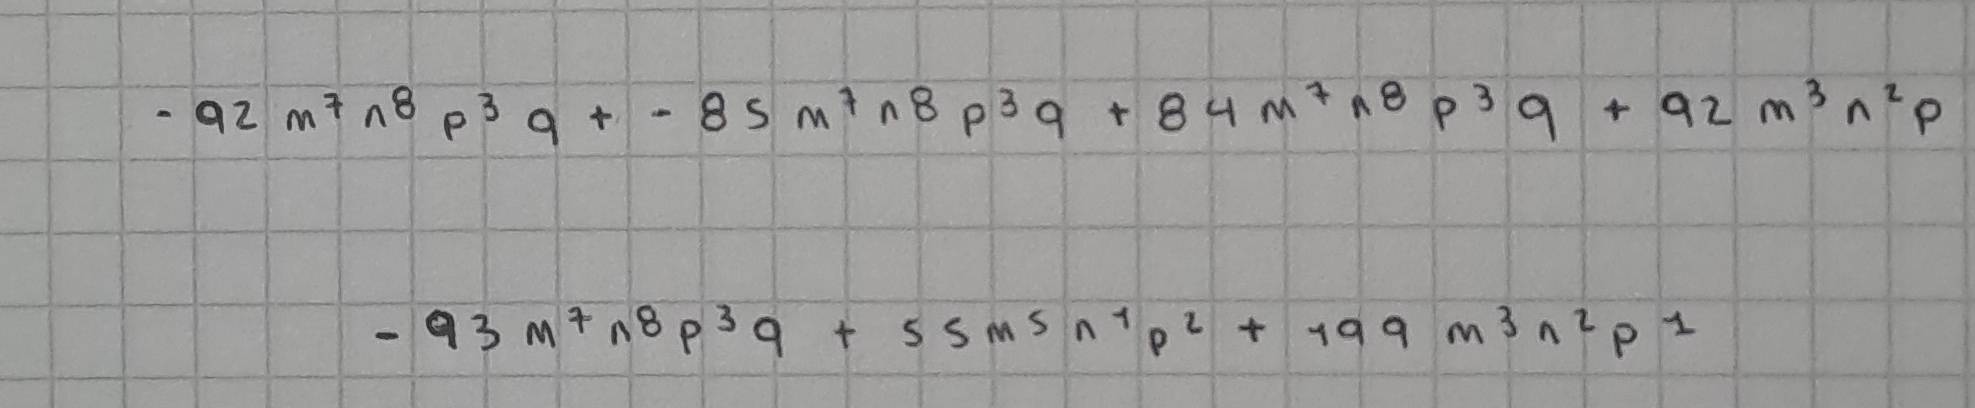 - 92 m⁷ n⁸ p³ q + - 85 m⁷ n⁸ p³ q + 84 m⁷ n⁸ p³ q + 92 m³ n² p
- 93 m⁷ n⁸ p³ q + 55 m⁵ n¹ p² + 199 m³ n² p¹